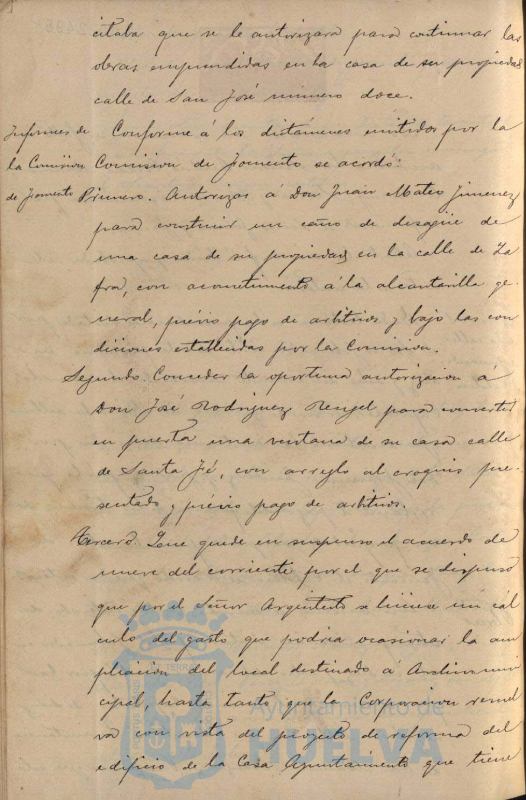 citaba que se le autorizara para continuar las
obras emprendidas en la casa de su propiedad
calle de San José número doce.
Informes de la Comision de Fomento
Conforme á los dictámenes emitidos por la
Comision de Fomento se acordó:
Primero. Autorizar á Don Juan Mateo Jimenez
para construir un caño de desagüe de
una casa de su propiedad en la calle de Za
fra, con acometimiento á la alcantarilla ge
neral, prévio pago de arbitrios y bajo las con
diciones establecidas por la Comision.
Segundo. Conceder la oportuna autorizacion á
Don José Rodriguez Rengel para convertir
en puerta una ventana de su casa calle
de Santa Fé, con arreglo al croquis pre
sentado y prévio pago de arbitrios.
Tercero. Que quede en suspenso el acuerdo de
nueve del corriente por el que se dispuso
que por el Señor Arquitecto se hiciese un cál
culo del gasto que podria ocasionar la am
pliacion del local destinado á Archivo muni
cipal, hasta tanto que la Corporacion resuel
va con vista del proyecto de reforma del
edificio de la Casa Ayuntamiento que tiene
Ayuntamiento de
HUELVA